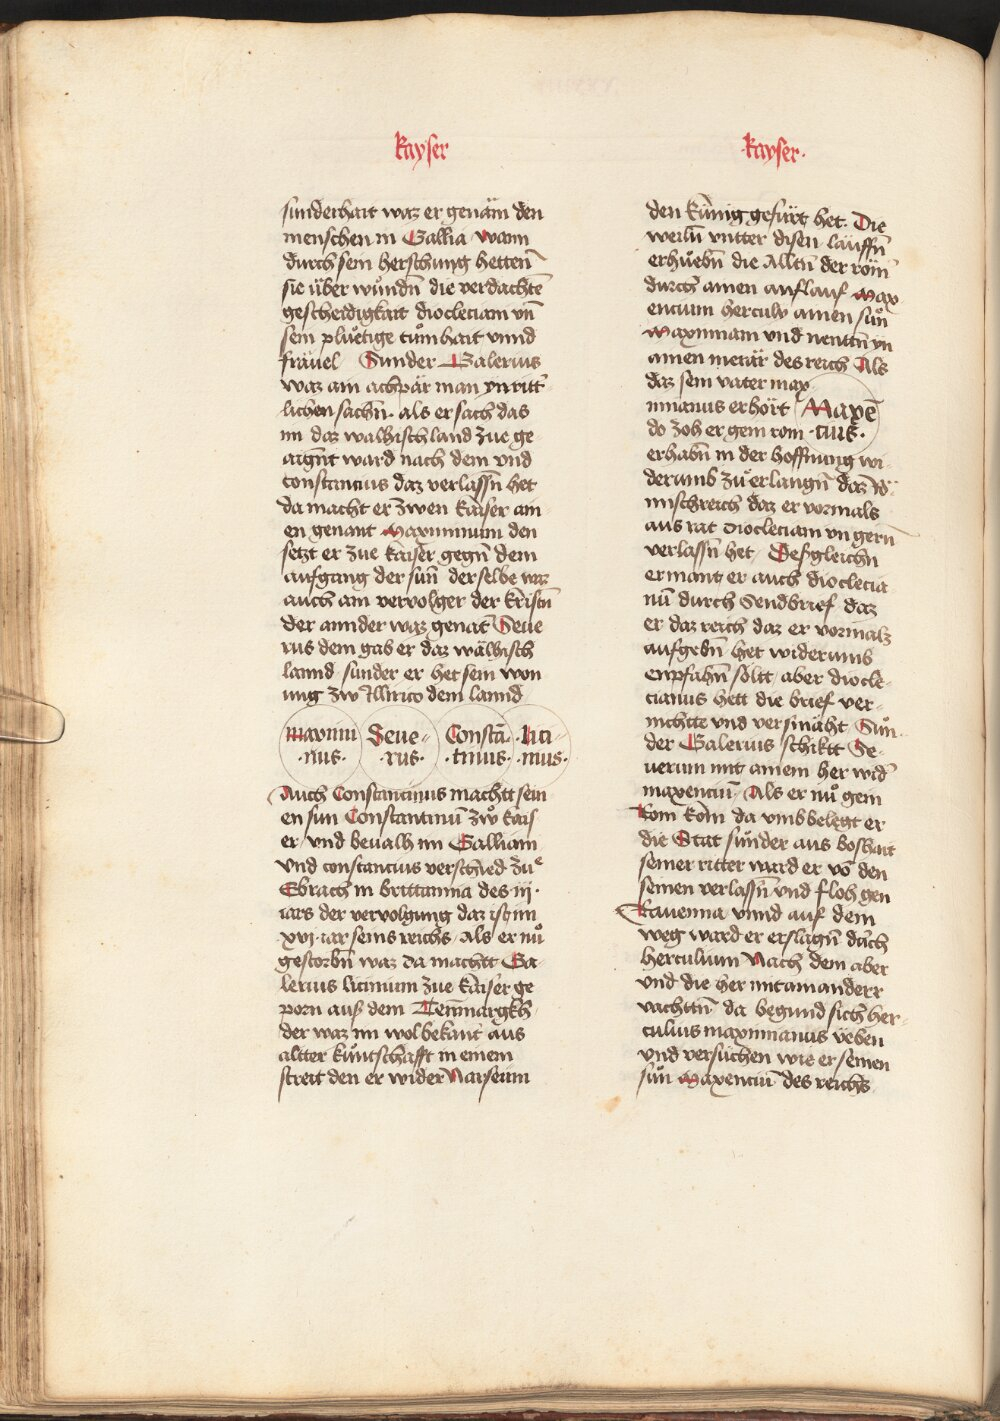 kayser
sunderhait waz er genäm den
menschen in Gallia wann
durch sein herschung hetten
sie über wŭndn̄ die verdachte
gescheidigkait diocleciani vn̄
sein plŭetige tŭmhait vnnd
fräuel Sunder Galerius
waz ain achpär man yn ritt'
lichen sachn̄ · als er sach das
im daz walhisch land zue ge
aignt ward nach dem vnd
constancius daz verlassn̄ het
da macht er zwen kaiser ain
en genant Maximinum den
setzt er zue kaiser gegn̄ dem
aufgang der sūn derselbe waz
auch ain vervolger der kristn̄
der annder waz genāt Seue
rus dem gab er daz wälhisch
lannd sunder er het sein won
ung zw Illirico dem lannd
maximi nus·
Seue= ·rus·
Constā· ·tinus·
·lici= ·nius·
Auch Constancius machtt sein
en sun Constantinū zwͦ kais
er vnd beualh im Galliam
vnd constancius verschied zuͤ
Ebrach in brittannia des iij·
iars der vervolgung daz ist im
·xvj· iar seins reichs Als er nuͦ
gestorbn̄ waz da machtt Ga-
lerius licinium zue kaiser ge
porn auß dem Tennmargkh
der waz im wol bekant aus
altter kŭntschafft in einem
streit den er wider Narseum
·kayser·
den kŭnig gefürt het· Die
weiln̄ vntter disen läuffn̄
erhŭebn̄ die Alltn̄ der röm̄
durch ainen auflauf Max
encium herculy ainen sŭn
Maximiani vnd nenttn̄ yn
ainen merär des reich Als
daz sein vater max
imianus erhört
Maxē ·cius·
do zoh er gein rom
erhabn̄ in der hoffnung wi
derumb zŭ erlangn̄ daz rö
mischreich daz er vormals
aus rat diocleciani vn gern
verlassn̄ het Deßgleichn̄
ermant er auch dioclecia
nū durch Sendbrief daz
er daz reich daz er vormalz
aufgebn̄ het widerumb
enpfahn̄ söltt aber diocle-
cianus hett die brief ver-
nichtte vnd versmäht Sŭn
der Galerius schiktt Se-
uerum mit ainem her wid'
maxenciū Als er nuͦ gein
Rom kom da vmbbelegt er
die Stat sŭnder aus boshait
seiner ritter ward er vō den
seinen verlassn̄ vnd floh gen
Rauenna vnnd auf dem
weg ward er erslagn̄ durch
herculium Nach dem aber
vnd die her mitainanderr
vachttn̄ da begund sich her-
culius maximianus veben
vnd versuchen wie er seinen
sŭn Maxenciū des reichs